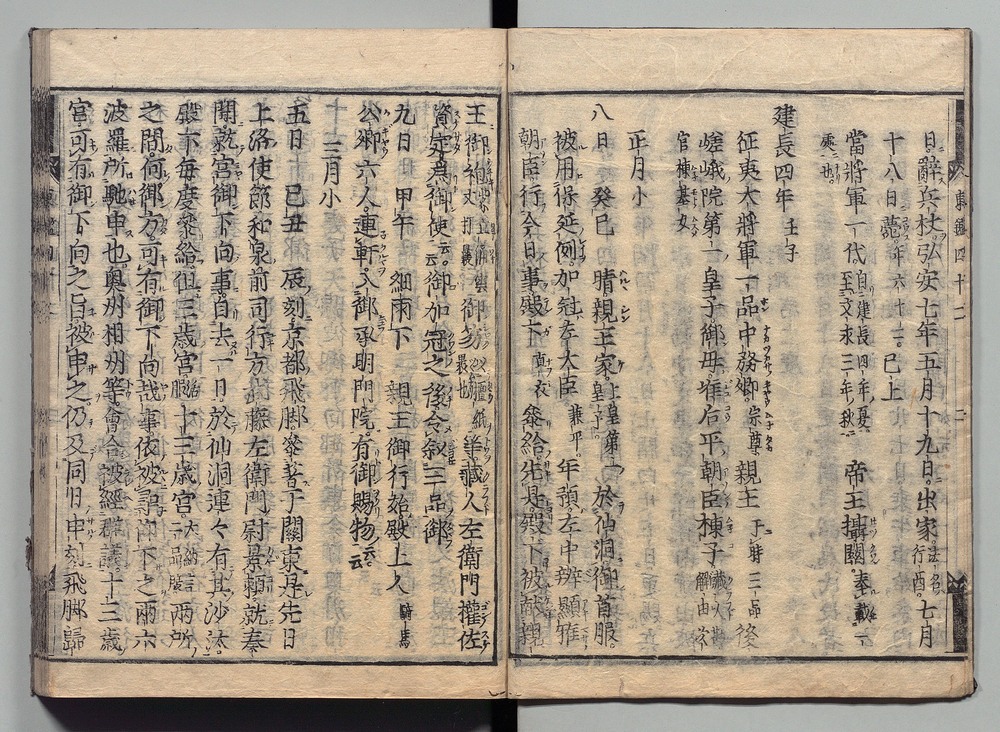 日。辞兵杖弘安七年五月十九日。出家法名行酉。七月
十八日薨。年六十二。已上
當將軍一代自建長四年夏至文永三年秋 帝王攝關。奉載
處也。
建長四年壬子
征夷大將軍一品中務卿宗尊親王于時三品後
嵯峨院第一皇子御母准后平朝臣棟子藏人勘解由次
官棟基女
正月小
八日癸巳 晴親王家上皇第一皇子。於仙洞御首服。
被用保延例。加冠左大臣兼平。年預。左中辨顯雅
朝臣行。今日事殿下直衣參給。先是殿下被献親
王御
資定為御使云云。御加冠之後令叙三品御
九日甲午 細雨下 親王御行始。殿上人騎馬
公卿六人連軒。入御承明門院。有御賜物云云
三月小
五日己丑 辰刻京都飛脚參著于關東。是先日
上洛使節和泉前司行方武藤左衛門尉景頼就奏
聞就宮御下向事自去一日於仙洞連々有其沙汰
殿下毎度參給。但三歳宮十三歳宮兩所
之間。何御方可有御下向哉事依被尋仰下之兩六
波羅所馳申也。奥州相州等會合被經群議十三歳
宮可有御下向之旨被申之仍及同日申刻飛脚歸
東鑑四十二